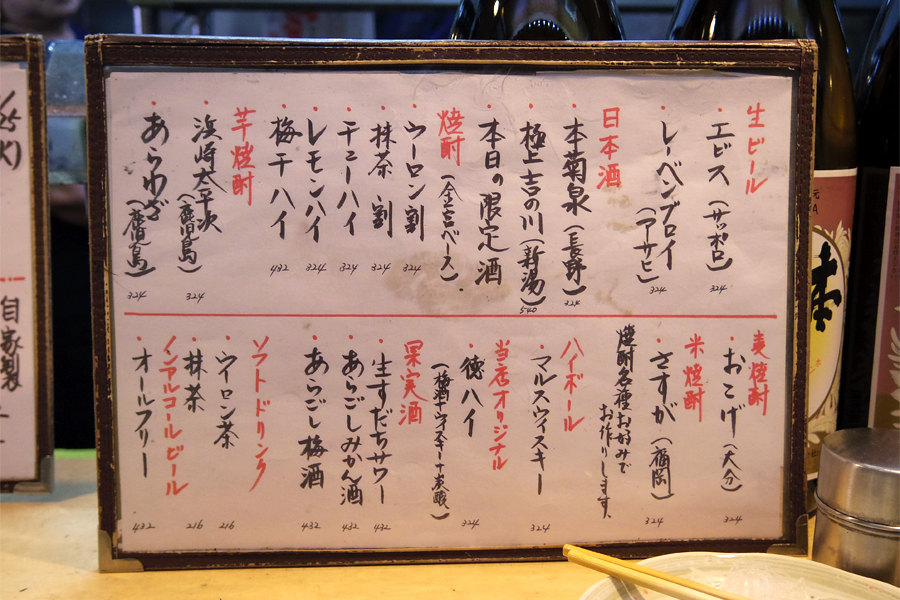 生ビール
・エビス(サッポロ) 324
・レーベンブロイ(アサヒ) 324
日本酒
・本菊泉(長野) 324
・極上吉の川(新潟) 540
・本日の限定酒
焼酎(金宮ベース)
・ウーロン割 324
・抹茶割 324
・チューハイ 324
・レモンハイ 324
・梅干ハイ 432
芋焼酎
・浜崎太平次(鹿児島) 324
・あらわざ(鹿児島) 324
麦焼酎
・おこげ(大分) 324
米焼酎
・さすが(福岡) 324
焼酎各種お好みで
お作りします。
ハイボール
・マルスウィスキー 324
当店オリジナル
・徳ハイ 324
(梅酒+ウィスキー+炭酸)
果実酒
・生すだちサワー 432
・あらごしみかん酒 432
・あらごし梅酒 432
ソフトドリンク
・ウーロン茶 216
・抹茶 216
ノンアルコールビール
・オールフリー 432
自家製